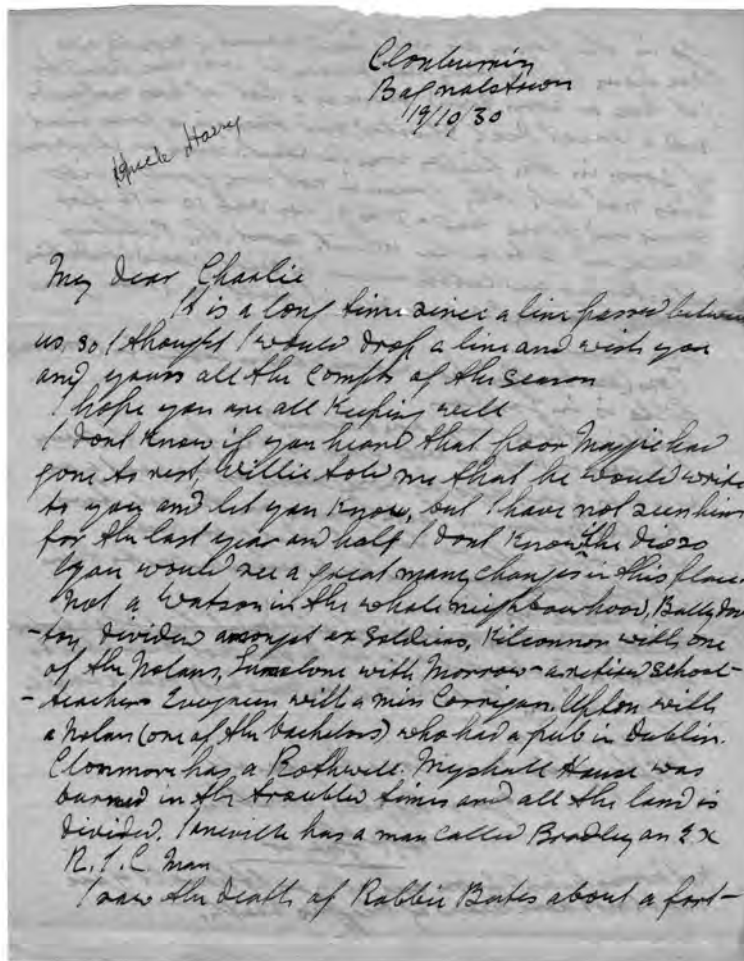 Clonburrin
Bagnalstown
19/10/30
Uncle Harry
My dear Charlie
It is a long time since a line passed between
us, so I thought I would drop a line and wish you
and yours all the compts of the season
I hope you are all keeping well
I dont know if you heard that poor Maggie had
gone to rest, Willie told me that he would write
to you and let you know, but I have not seen him
for the last year and half I dont know if he did so
you would see a great many changes in this place
not a Watson in the whole neighbourhood,
divided amongst ex Soldiers, Kilconnor with one
of the Nolans, with Morrow a retired school-
-teacher Evergreen with a miss Corrigan. with
a Nolan (one of the bachelors) who had a pub in Dublin.
Clonmore has a Rothwell. Myshall House was
burned in the troubled times and all the land is
divided. Janeville has a man called Bradley an Ex
R.I.C. Man
I saw the death of Robbie Bates about a fort-